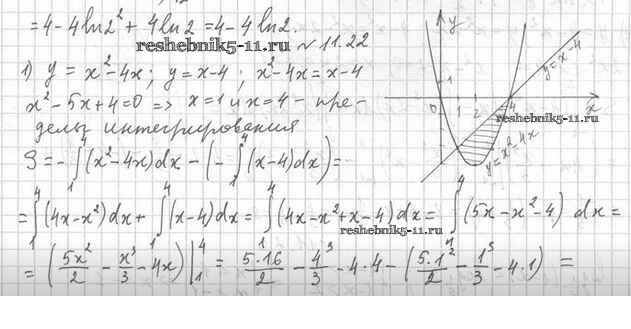 = 4 - 4 ln 2² + 4 ln 2 = 4 - 4 ln 2.
reshebnik5-11.ru № 11.22
1) y = x² - 4x; y = x - 4; x² - 4x = x - 4
x² - 5x + 4 = 0 => x = 1 и x = 4 - пре-
делы интегрирования
S = - ∫₁⁴ (x² - 4x) dx - (- ∫₁⁴ (x - 4) dx) =
= ∫₁⁴ (4x - x²) dx + ∫₁⁴ (x - 4) dx = ∫₁⁴ (4x - x² + x - 4) dx = ∫₁⁴ (5x - x² - 4) dx =
reshebnik5-11.ru
= (5x²/2 - x³/3 - 4x) |₁⁴ = 5·16/2 - 4³/3 - 4·4 - (5·1²/2 - 1³/3 - 4·1) =
y
y = x - 4
1
0 1 2 4 x
reshebnik5-11.ru
y = x² - 4x